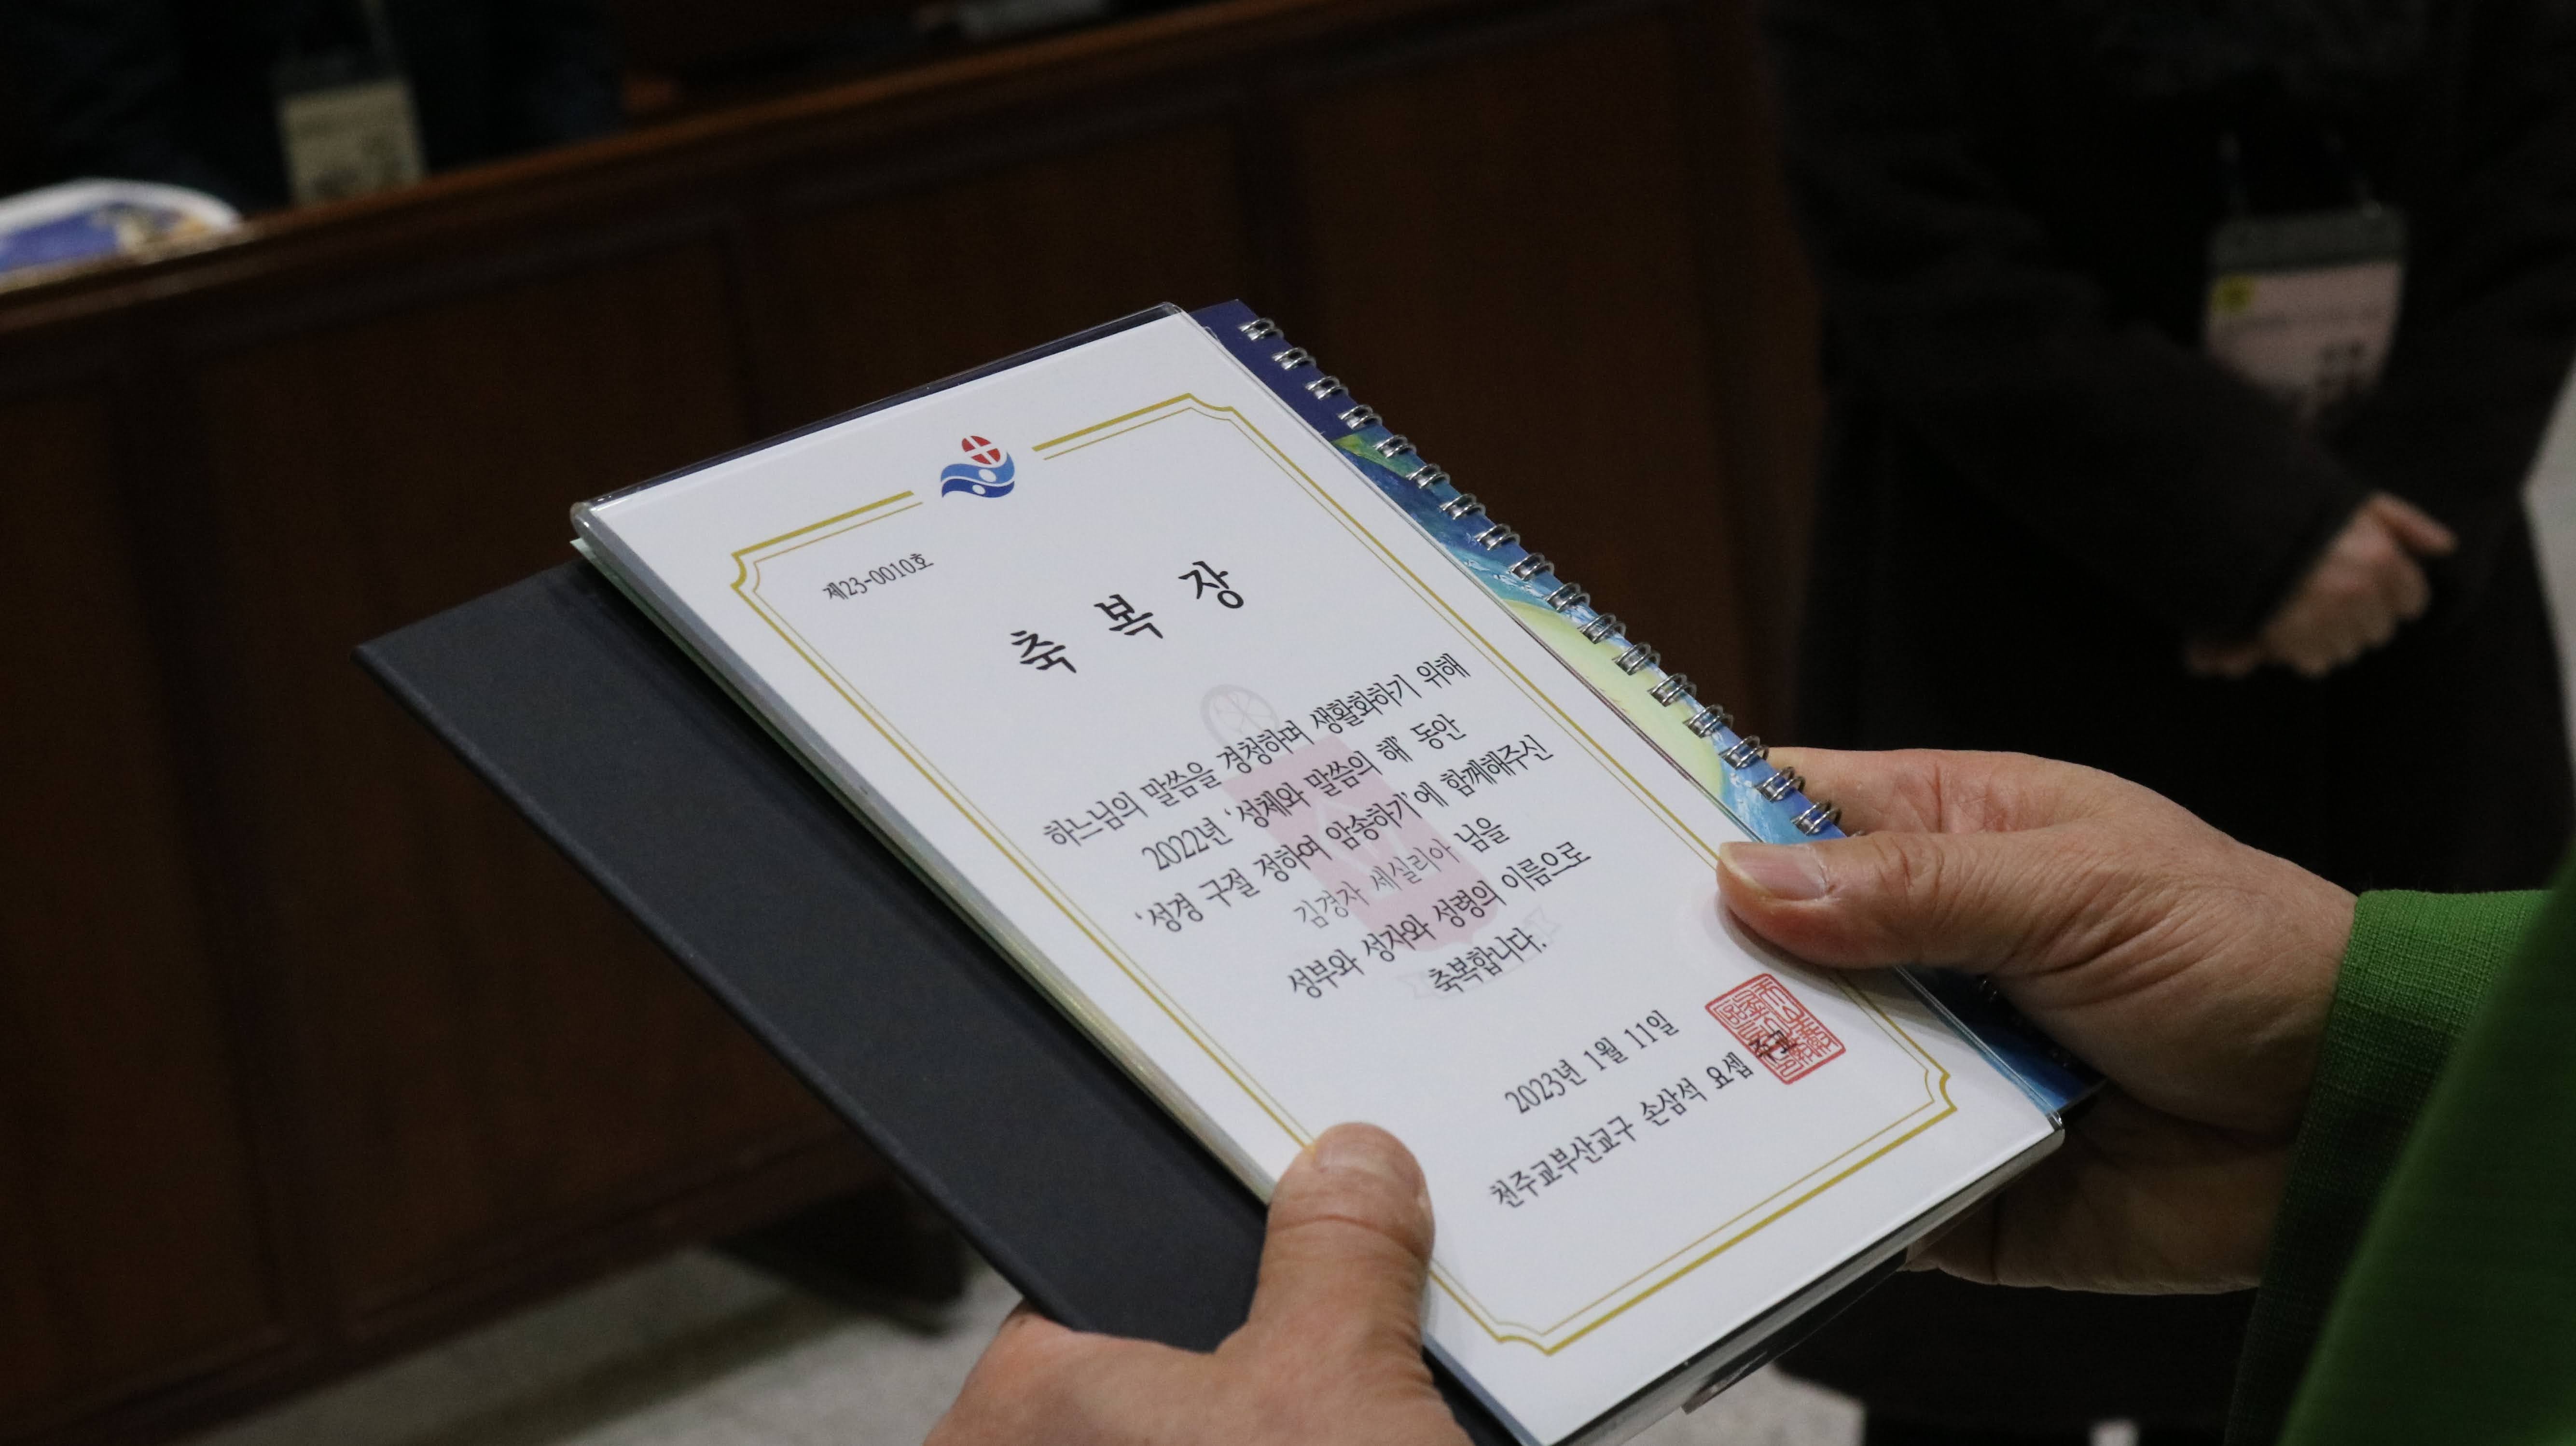 제23-0010호
축 복 장
하느님의 말씀을 경청하며 생활화하기 위해
2022년 '성체와 말씀의 해' 동안
'성경 구절 정하여 암송하기'에 함께해주신
김경자 세실리아 님을
성부와 성자와 성령의 이름으로
축복합니다.
2023년 1월 11일
천주교부산교구 손삼석 요셉 주교